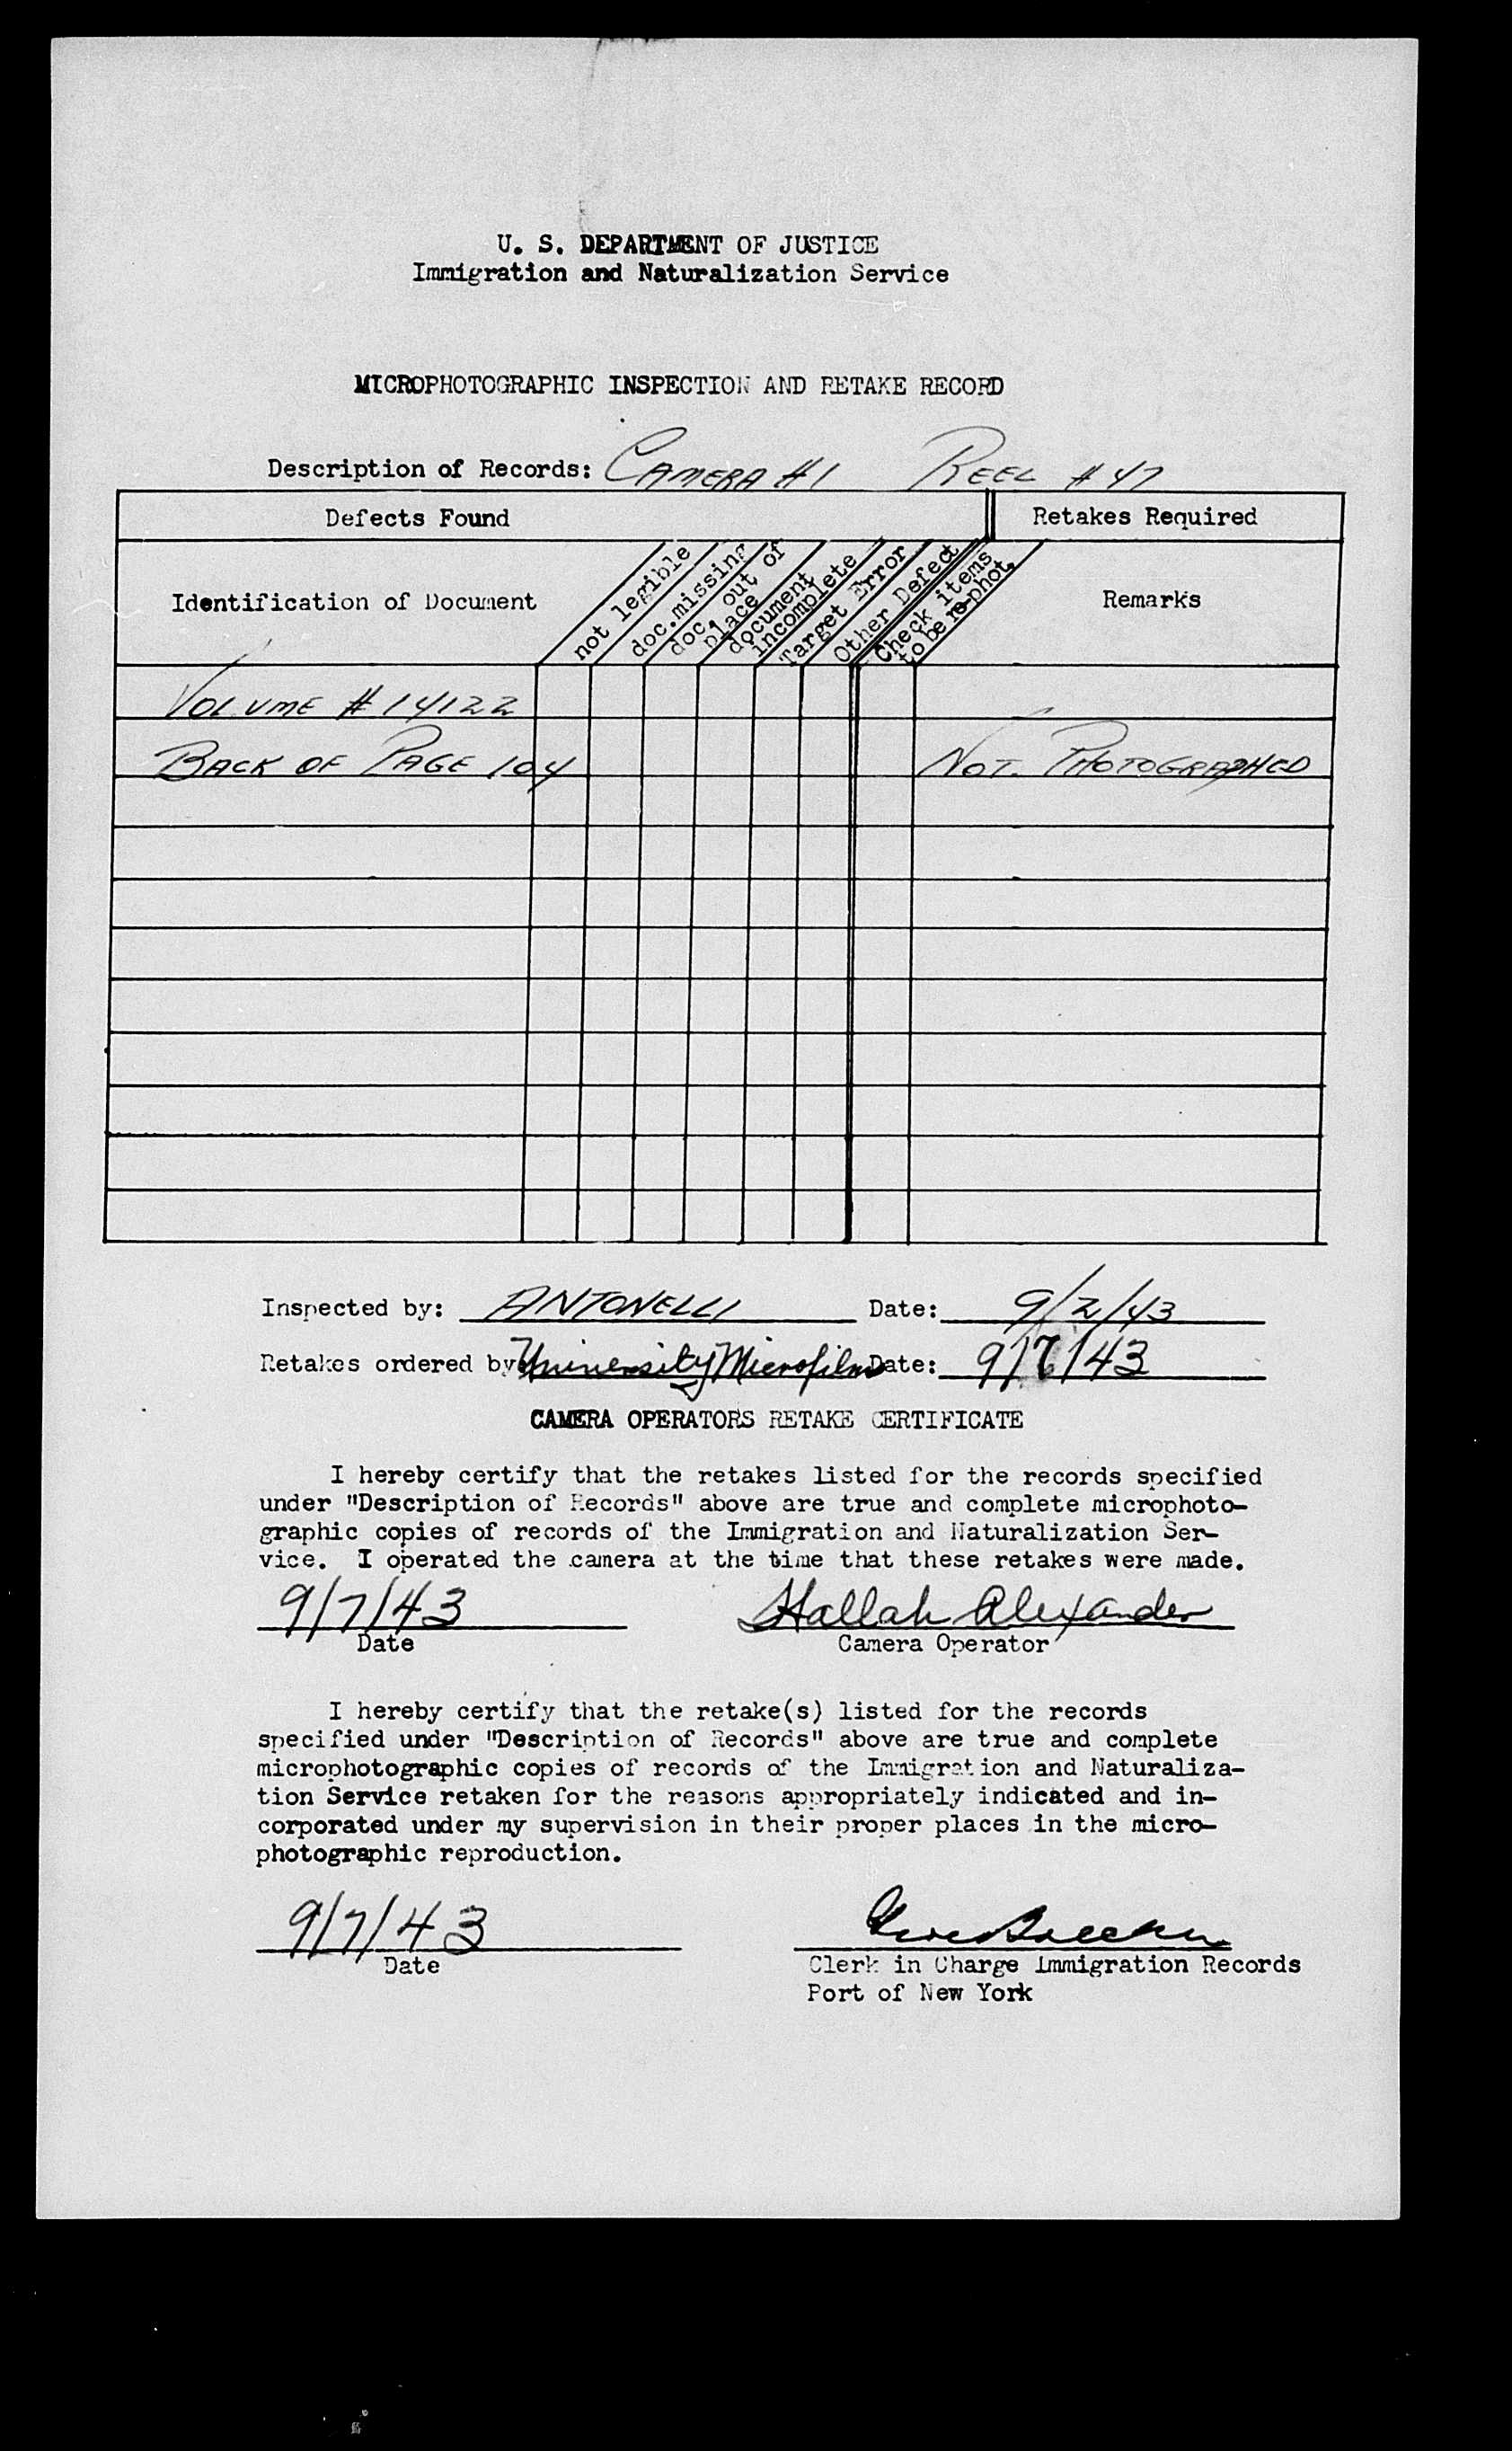 U. S. DEPARTMENT OF JUSTICE
Immigration and Naturalization Service
MICROPHOTOGRAPHIC INSPECTION AND RETAKE RECORD
Description of Records: CAMERA #1 REEL #47
Defects Found
Retakes Required
Identification of Document
not legible
doc.missing
doc. out of
place
document
incomplete
Target Error
Other Defect
Check items
to be re-phot.
Remarks
VOLUME # 14122
BACK OF PAGE 104 NOT PHOTOGRAPHED
Inspected by: ANTONELLI Date: 9/2/43
Retakes ordered by: University Microfilms Date: 9/7/43
CAMERA OPERATORS RETAKE CERTIFICATE
I hereby certify that the retakes listed for the records specified
under "Description of Records" above are true and complete microphoto-
graphic copies of records of the Immigration and Naturalization Ser-
vice. I operated the camera at the time that these retakes were made.
9/7/43 Hallah Alexander
Date Camera Operator
I hereby certify that the retake(s) listed for the records
specified under "Description of Records" above are true and complete
microphotographic copies of records of the Immigration and Naturaliza-
tion Service retaken for the reasons appropriately indicated and in-
corporated under my supervision in their proper places in the micro-
photographic reproduction.
9/7/43
Date Clerk in Charge Immigration Records
Port of New York